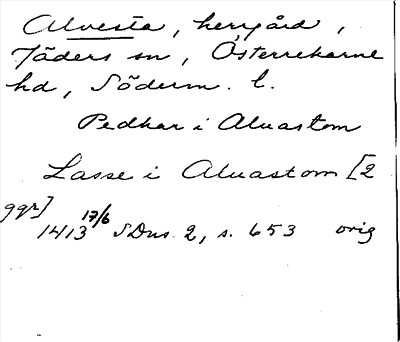 Alvesta, herrgård,
Jäders sn, Österrekarne
hd, Söderm. l.
Pedhar i Aluastom
Lasse i Aluastom [2
ggr]
1413 17/6 SDns 2, s. 653 orig